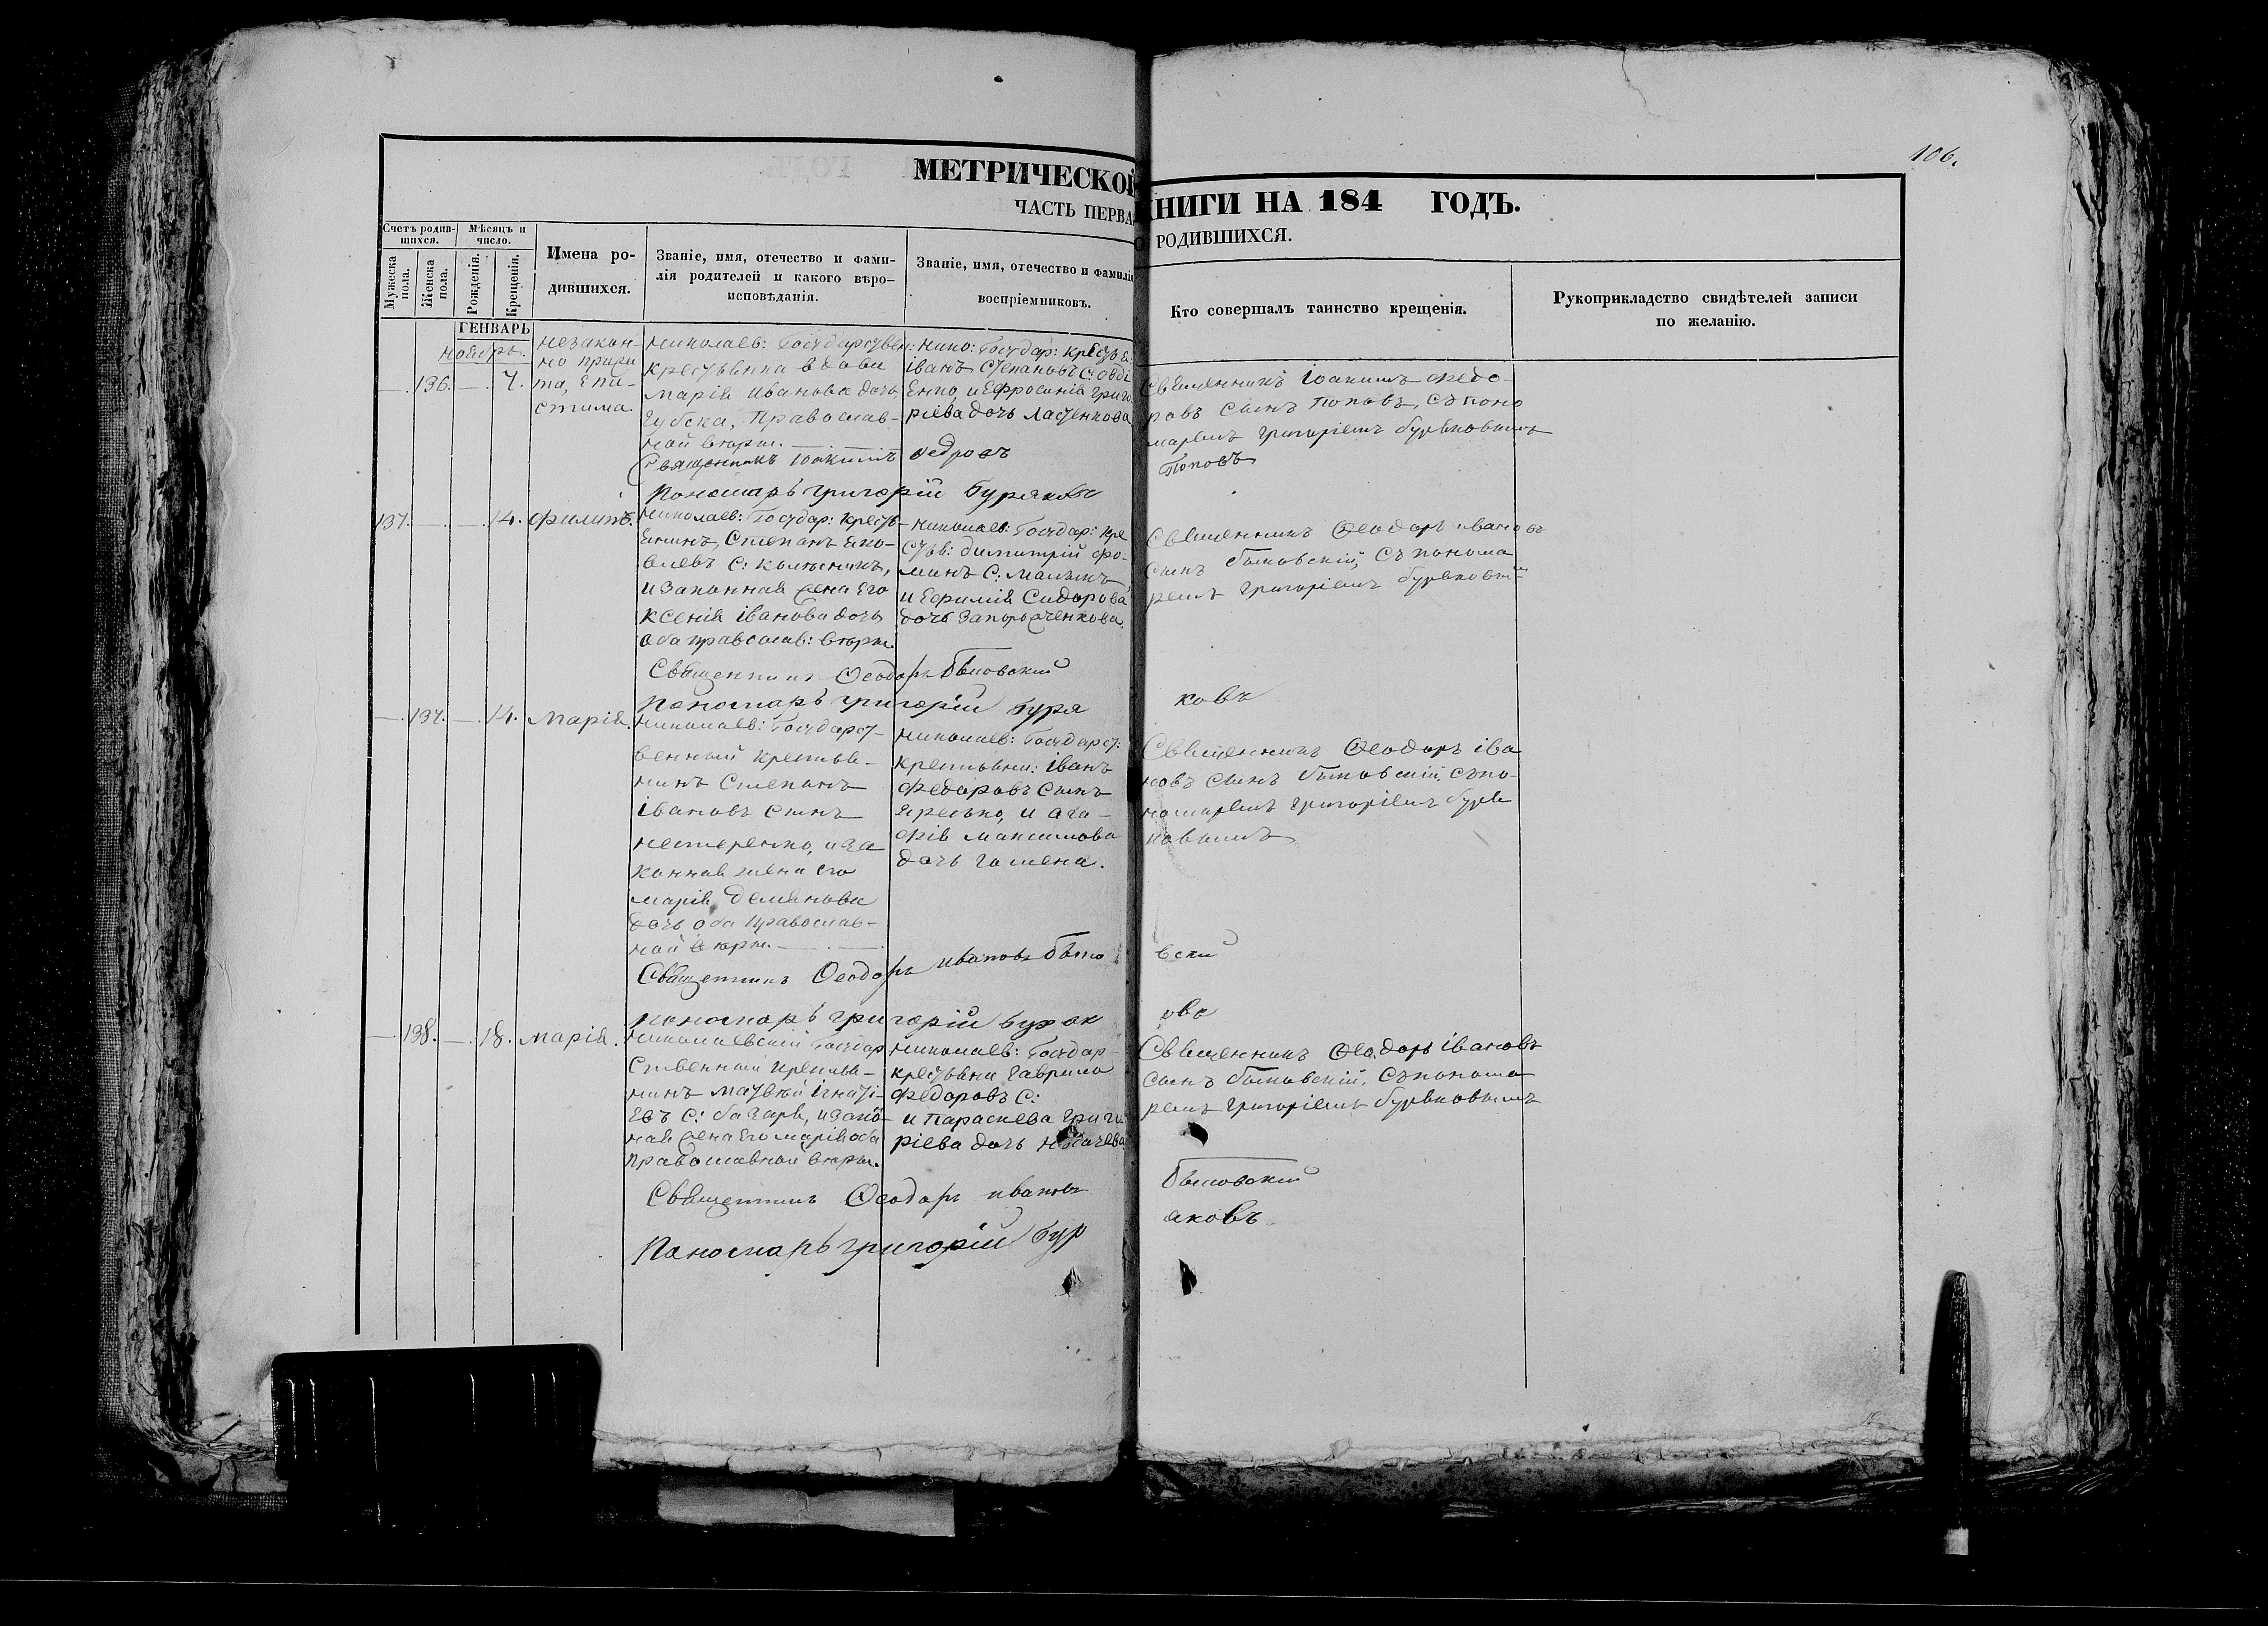 106.
МЕТРИЧЕСКОЙ КНИГИ НА 184 ГОДЪ.
ЧАСТЬ ПЕРВАЯ О РОДИВШИХСЯ.
Счетъ родив-
шихся.
Мужеска пола.
Женска пола.
Мѣсяцъ и
число.
Рожденія.
Крещенія.
Имена ро-
дившихся.
Званіе, имя, отечество и фами-
лія родителей и какого вѣро-
исповѣданія.
Званіе, имя, отечество и фамилія
воспріемниковъ.
Кто совершалъ таинство крещенія.
Рукоприкладство свидѣтелей записи
по желанію.
ГЕНВАРЬ
ноябрь.
— 136. — 7.
незакон-
но прижи
та, Епи-
стима.
николаев: Государствен:
крестьянка вдова
Марія Иванова дочь
Губска, Православ-
ной вѣры.
нико: Государ: крестья:
іванъ Степановъ с:
енко, и Ефросинія Григо
ріева дочь Лащенкова
Священникъ Іоакимъ Федо-
ровъ сынъ Поповъ, съ поно
маремъ Григоріемъ Буряковымъ
Священникъ Іоакимъ Федровъ
Поповъ
Пономарь Григорій Буряковъ
137. — — 14. Филипъ.
николаев: Государ: кресть-
янинъ, Степанъ Яко-
влевъ с: Колѣсникъ,
и законная жена его
Ксенія Іванова дочь
оба православ: вѣры.
николаев: Государ: кре
стья: димитрій Фо-
минъ с:
и Ефимія Сидорова
дочь Запорожченкова.
Священникъ Ѳеодоръ Ивановъ
сынъ Бѣловскій, съ понома
ремъ Григоріемъ Буряковым
Священникъ Ѳеодоръ Бѣловский
Пономарь Григорій Буря
ковъ
— 137. — 14. Марія.
николаев: Государст-
венный крестья-
нинъ Степанъ
Івановъ сынъ
Нестеренко, и за
конная жена его
Марія Демянова
дочь оба православ-
ной вѣры.
николаев: Государст:
крестьяни: Іванъ
Федоровъ сынъ
Яресько, и Ага-
фія Максимова
дочь
Священникъ Ѳеодоръ Іва
новъ сынъ Бѣловскій, съ по-
номаремъ Григоріемъ Буря
ковымъ
Священникъ Ѳеодоръ Ивановъ Бѣло
вский
Пономарь Григорій Буряк
овъ
— 138. — 18. Марія.
николаевскій Государ
ственный крестья-
нинъ Матвѣй Ігнаті-
евъ с: Базаря, и закон-
ная жена его Марія оба
православной вѣры.
николаев: Государ-
крестьяни Гаврило
Федоровъ с:
и Параскева Григо
ріева дочь
Священникъ Ѳеодоръ Івановъ
сынъ Бѣловскій, съ понома
ремъ Григоріемъ Буряковымъ
Священникъ Ѳеодоръ Ивановъ
Бѣловский
Пономарь Григорій Бур
яковъ